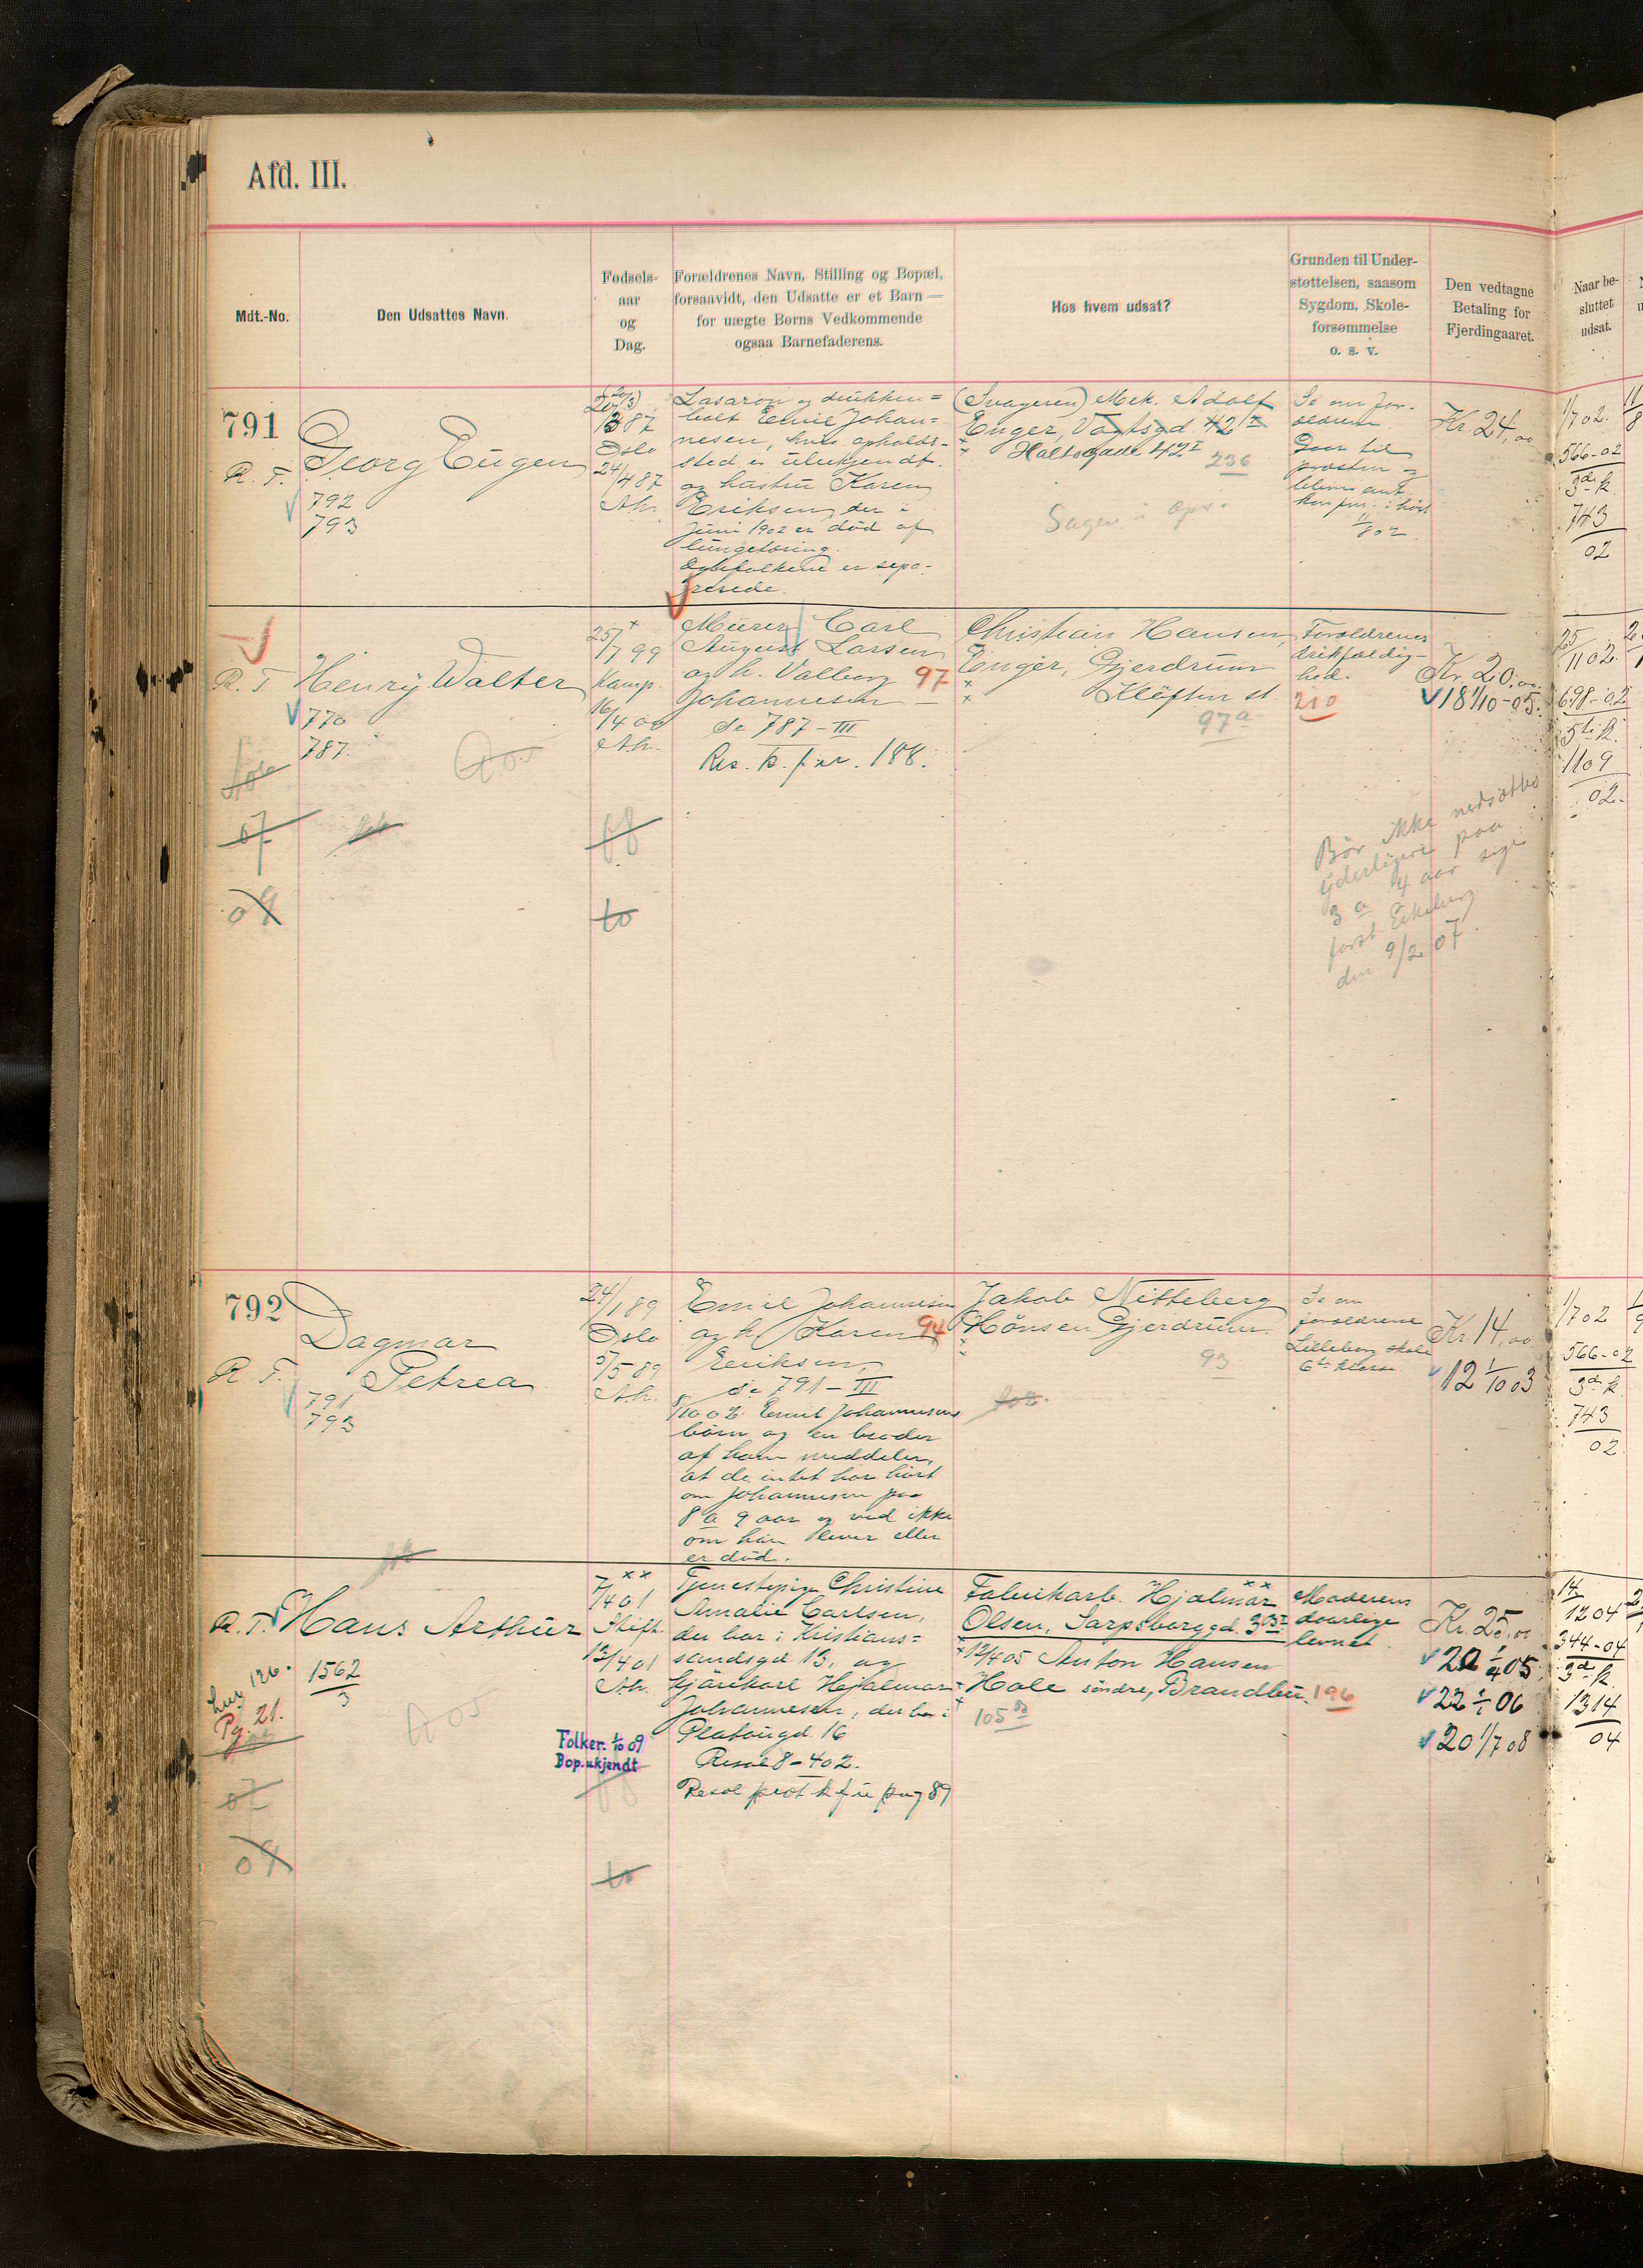 Afd. III.
Mdt.-No.
Den Udsattes Navn.
Fødsels-
aar
og
Dag.
Forældrenes Navn, Stilling og Bopæl,
forsaavidt, den Udsatte er et Barn —
for uægte Børns Vedkommende
ogsaa Barnefaderens.
Hos hvem udsat?
Grunden til Under-
støttelsen, saasom
Sygdom, Skole-
forsømmelse
o. s. v.
Den vedtagne
Betaling for
Fjerdingaaret.
Naar be-
sluttet
udsat.
791
R. T.
Georg Eugen
792
793
3 87
Oslo
24/4 87
Ah.
Lasaron og drukken=
bolt Emil Johan=
nesen, hvis opholds-
sted er ubekjendt.
og hustru Karen
Eriksen, der i
Juni 1902 er död af
lungetæring.
Ægtefolkene er sepa-
rerede.
(Svogeren) Mek. Adolf
Enger, Vogtsgd. 42 I
Holtsgade 42 I
236
Sagen i Ops.
Se om for-
ældrene
Gaar til
præsten og
bliver ant.
konfirm. i höst
11/8 02.
Kr. 24,00
1/7 02.
566-02
3die k.
743
02
R. T
Henry Walter
770
787.
25/7 99
Kamp.
16/4 00
Ah.
Murer Carl
August Larsen
og h. Valborg 97
Johannesen —
Se 787 - III
Res. k. f. nr. 188.
Christian Hansen
Enger, Gjerdrum
Klöften st.
97a
Forældrenes
drikfældig-
hed.
210
Kr. 20,00
18 1/10-05.
25/11 02.
698-02
5te k.
1109
02.
A 05
07
09
08
10
Bör ikke nedsættes
yderligere paa
3 a 4 aar siger
forst. Eckeberg
den 9/2 07.
792
R. T.
Dagmar
Petrea
791
793
24/1 89
Oslo
5/5 89
Ah.
Emil Johannesen
og h. Karen 94
Eriksen,
Se 791 - III
8/10 02. Emil Johannesens
börn og en broder
af ham meddeler,
at de intet har hört
om Johannesen paa
8 a 9 aar og ved ikke
om han lever eller
er död.
Jakob Nitteberg
Hönsen Gjerdrum.
93
Se om
forældrene
Lilleborg skole
6te klasse
Kr 14,00
12 1/10 03
1/7 02
566-02
3die k.
743
02.
R. T.
Hans Arthur
1562
3
Pg. 21.
7/4 01
Stift.
12/4 01
Ah.
Folker. 1/10 09
Bop. ukjendt
Tjenestepige Christine
Amalie Carlsen,
der bor i Kristians=
sandsgd 13, og
kjörekarl Hjalmar
Johannesen, der bor i
Platougd. 16
Resol 8-402.
Resol prot k f u pag 89
Fabrikarb. Hjalmar
Olsen, Sarpsborggd. 3
12/4 05 Anton Hansen
Hole söndre, Brandbu.
196
105
Moderens
daarlige
levnet.
Kr. 25,00
20 1/4 05
22 1/1 06
20 1/7 08
14/12 04
344-04
3die k.
1314
04
A 05
07
09
08
10